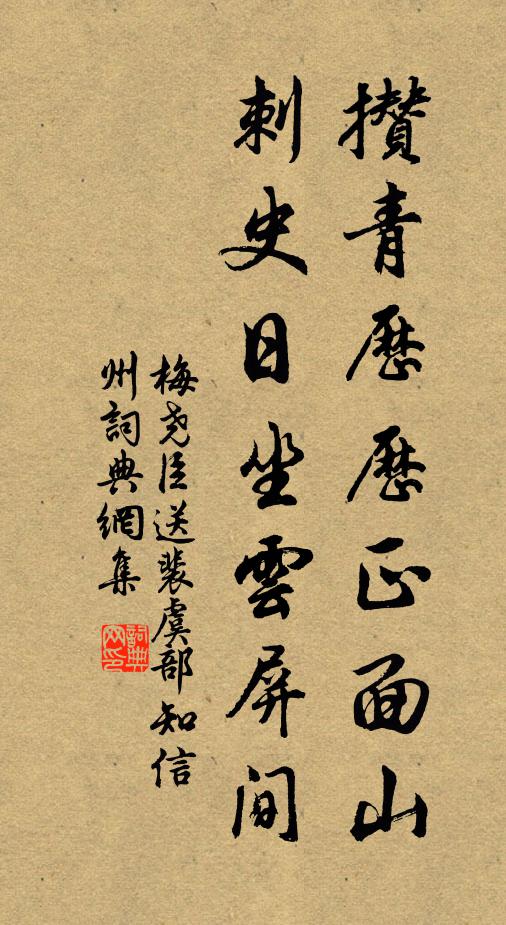 攢青歷歷正面山
刺史日坐雲屏間
梅尧臣送裴虞部知信
州詞典網集
詞典网印